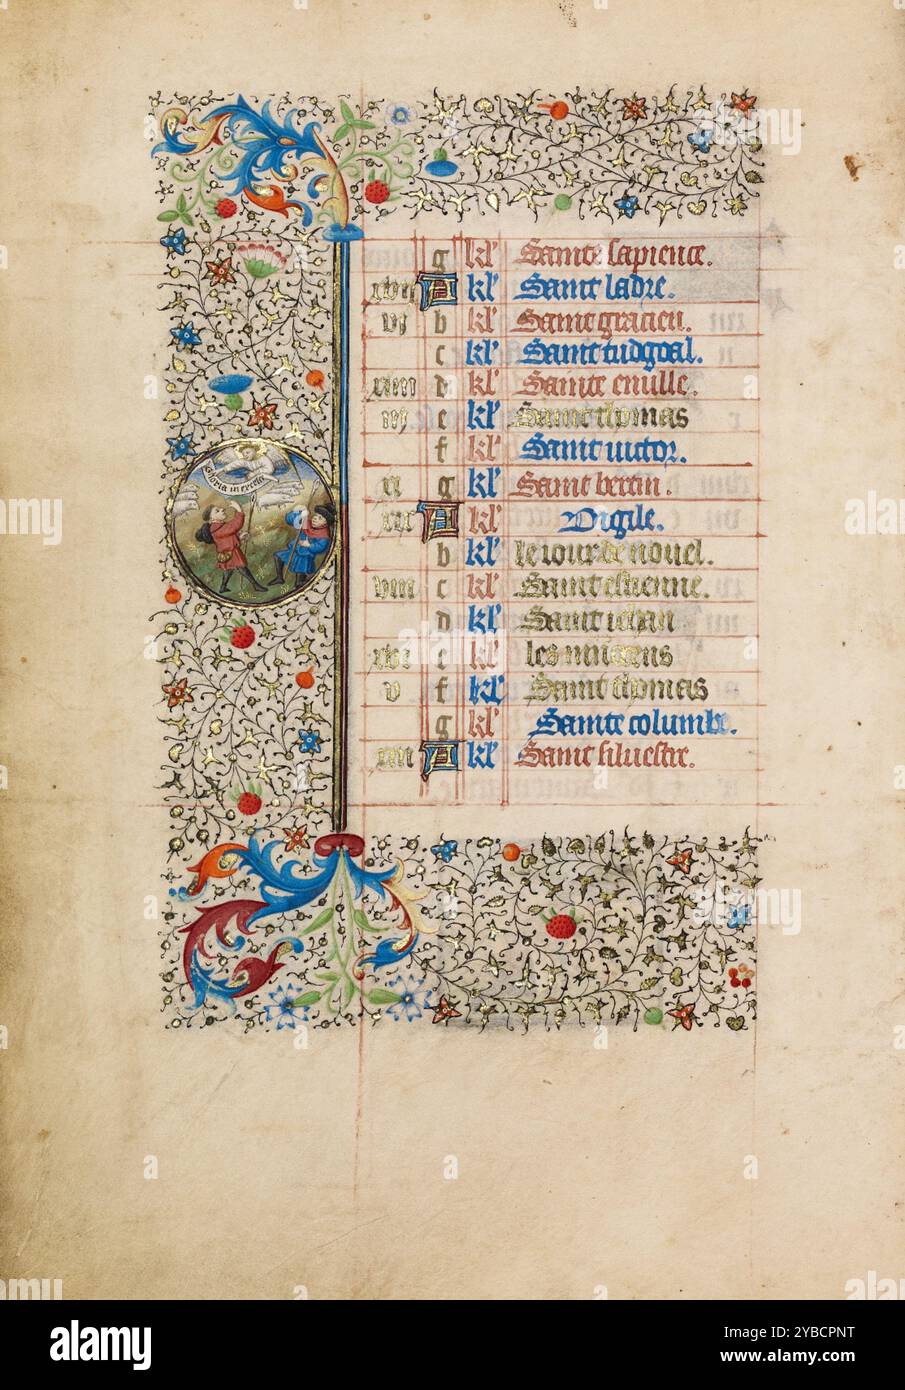 Gloria in excelsis
g kl' Sainte sapience.
xviij A kl' Saint ladre.
vij b kl' Saint gracien.
c kl' Saint tudgoal.
d kl' Sainte enille.
e kl' Saint thomas
f kl' Saint uictor.
xi g kl' Saint bertin.
A kl' Vigile.
b kl' le iour de nouel.
viii c kl' Saint estienne.
d kl' Saint iehan
xvi e kl' les innocens
v f kl' Saint thomas
g kl' Sainte columbe.
A kl' Saint siluestre.
alamy
Image ID: 2YBCPNT
www.alamy.com